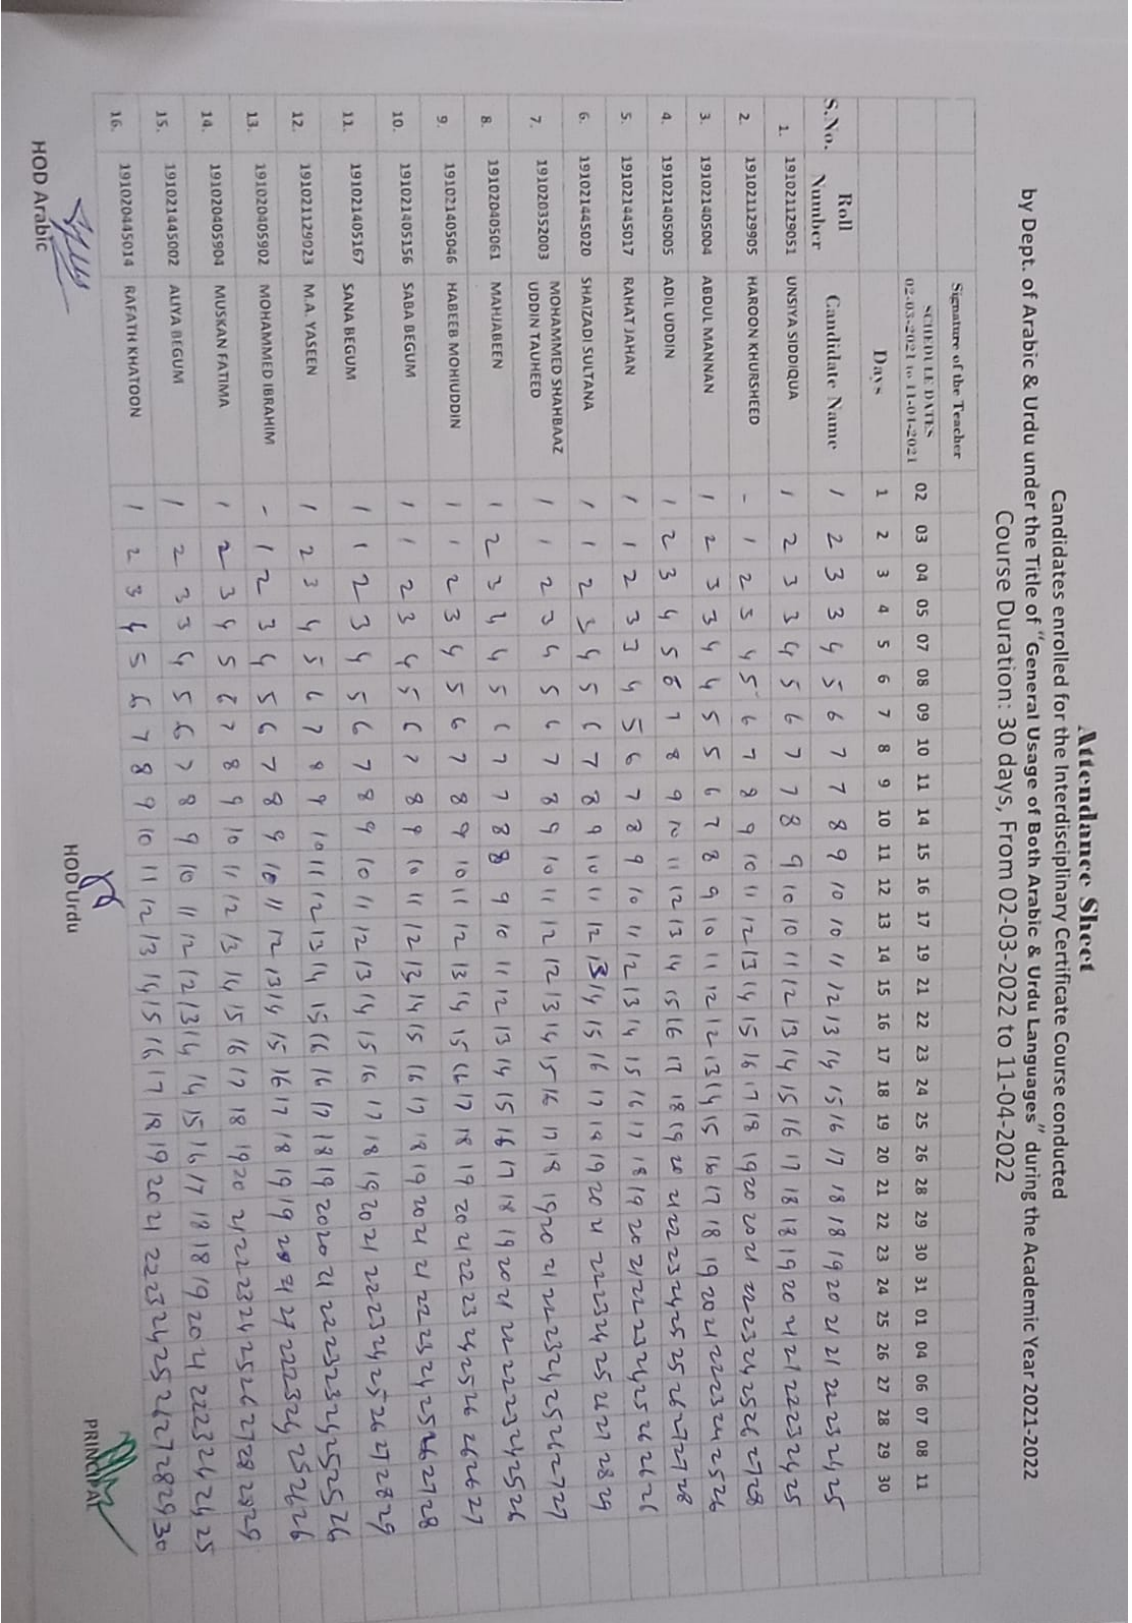 Attendance Sheet
Candidates enrolled for the Interdisciplinary Certificate Course conducted
by Dept. of Arabic & Urdu under the Title of "General Usage of Both Arabic & Urdu Languages" during the Academic Year 2021-2022
Course Duration: 30 days, From 02-03-2022 to 11-04-2022
Signature of the Teacher
SCHEDLE DATES
02-03-2021 to 11-04-2021 02 03 04 05 07 08 09 10 11 14 15 16 17 19 21 22 23 24 25 26 28 29 30 31 01 04 06 07 08 11
Days 1 2 3 4 5 6 7 8 9 10 11 12 13 14 15 16 17 18 19 20 21 22 23 24 25 26 27 28 29 30
S.No. Roll Number Candidate Name 1 2 3 3 4 5 6 7 7 8 9 10 10 11 12 13 14 15 16 17 18 18 19 20 21 21 22 23 24 25
1. 191021129051 UNSIYA SIDDIQUA 1 2 3 3 4 5 6 7 7 8 9 10 10 11 12 13 14 15 16 17 18 18 19 20 21 21 22 23 24 25
2. 191021129905 HAROON KHURSHEED - 1 2 3 4 5 6 7 8 9 10 11 12 13 14 15 16 17 18 19 20 20 21 22 23 24 25 26 27 28
3. 191021405004 ABDUL MANNAN 1 2 3 3 4 4 5 5 6 7 8 9 10 11 12 12 13 14 15 16 17 18 19 20 21 22 23 24 25 26
4. 191021405005 ADIL UDDIN 1 2 3 4 5 6 7 8 9 10 11 12 13 14 15 16 17 18 19 20 21 22 23 24 25 25 26 27 27 28
5. 191021445017 RAHAT JAHAN 1 1 2 3 3 4 5 6 7 8 9 10 11 12 13 14 15 16 17 18 19 20 21 22 23 24 25 26 26 26
6. 191021445020 SHAIZADI SULTANA 1 1 2 3 4 5 6 7 8 9 10 11 12 13 14 15 16 17 18 19 20 21 22 23 24 25 26 27 28 29
7. 191020352003 MOHAMMED SHAHBAAZ
UDDIN TAUHEED 1 1 2 3 4 5 6 7 8 9 10 11 12 12 13 14 15 16 17 18 19 20 21 22 23 24 25 26 27 27
8. 191020405061 MAHJABEEN 1 2 3 4 4 5 6 7 7 8 8 9 10 11 12 13 14 15 16 17 18 19 20 21 22 22 23 24 25 26
9. 191021405046 HABEEB MOHIUDDIN 1 1 2 3 4 5 6 7 8 9 10 11 12 13 14 15 16 17 18 19 20 21 22 23 24 25 26 26 26 27
10. 191021405156 SABA BEGUM 1 1 2 3 4 5 6 7 8 9 10 11 12 13 14 15 16 17 18 19 20 21 21 22 23 24 25 26 27 28
11. 191021405167 SANA BEGUM 1 1 2 3 4 5 6 7 8 9 10 11 12 13 14 15 16 17 18 19 20 21 22 23 24 25 26 27 28 29
12. 191021129023 M.A. YASEEN 1 2 3 4 5 6 7 8 9 10 11 12 13 14 15 16 16 17 18 19 20 20 21 22 23 23 24 25 25 26
13. 191020405902 MOHAMMED IBRAHIM - 1 2 3 4 5 6 7 8 9 10 11 12 13 14 15 16 17 18 19 19 20 21 21 22 23 24 25 26 26
14. 191020405904 MUSKAN FATIMA 1 2 3 4 5 6 7 8 9 10 11 12 13 14 15 16 17 18 19 20 21 22 23 24 25 26 27 28 28 29
15. 191021445002 ALIYA BEGUM 1 2 3 3 4 5 6 7 8 9 10 11 12 12 13 14 14 15 16 17 18 18 19 20 21 22 23 24 24 25
16. 191020445014 RAFATH KHATOON 1 2 3 4 5 6 7 8 9 10 11 12 13 14 15 16 17 18 19 20 21 22 23 24 25 26 27 28 29 30
HOD Arabic HOD Urdu PRINCIPAL